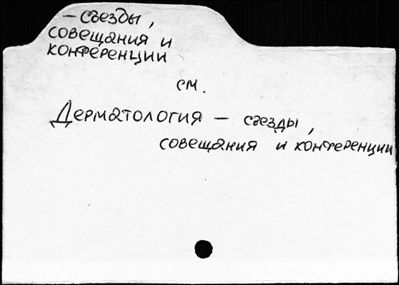 — съезды,
совещания и
конференции
см.
Дерматология — съезды,
совещания и конференции